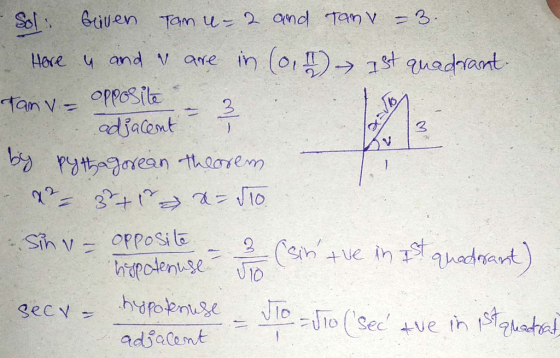 Sol: Given Tan u = 2 and Tan v = 3.
Here u and v are in (0, π/2) → Ist quadrant.
Tan v = opposite/adjacent = 3/1
x=√10
3
v
1
by pythagorean theorem
x² = 3²+1² ⇒ x = √10
Sin v = opposite/hypotenuse = 3/√10 ('sin' +ve in Ist quadrant)
sec v = hypotenuse/adjacent = √10/1 = √10 ('sec' +ve in 1st quadrat